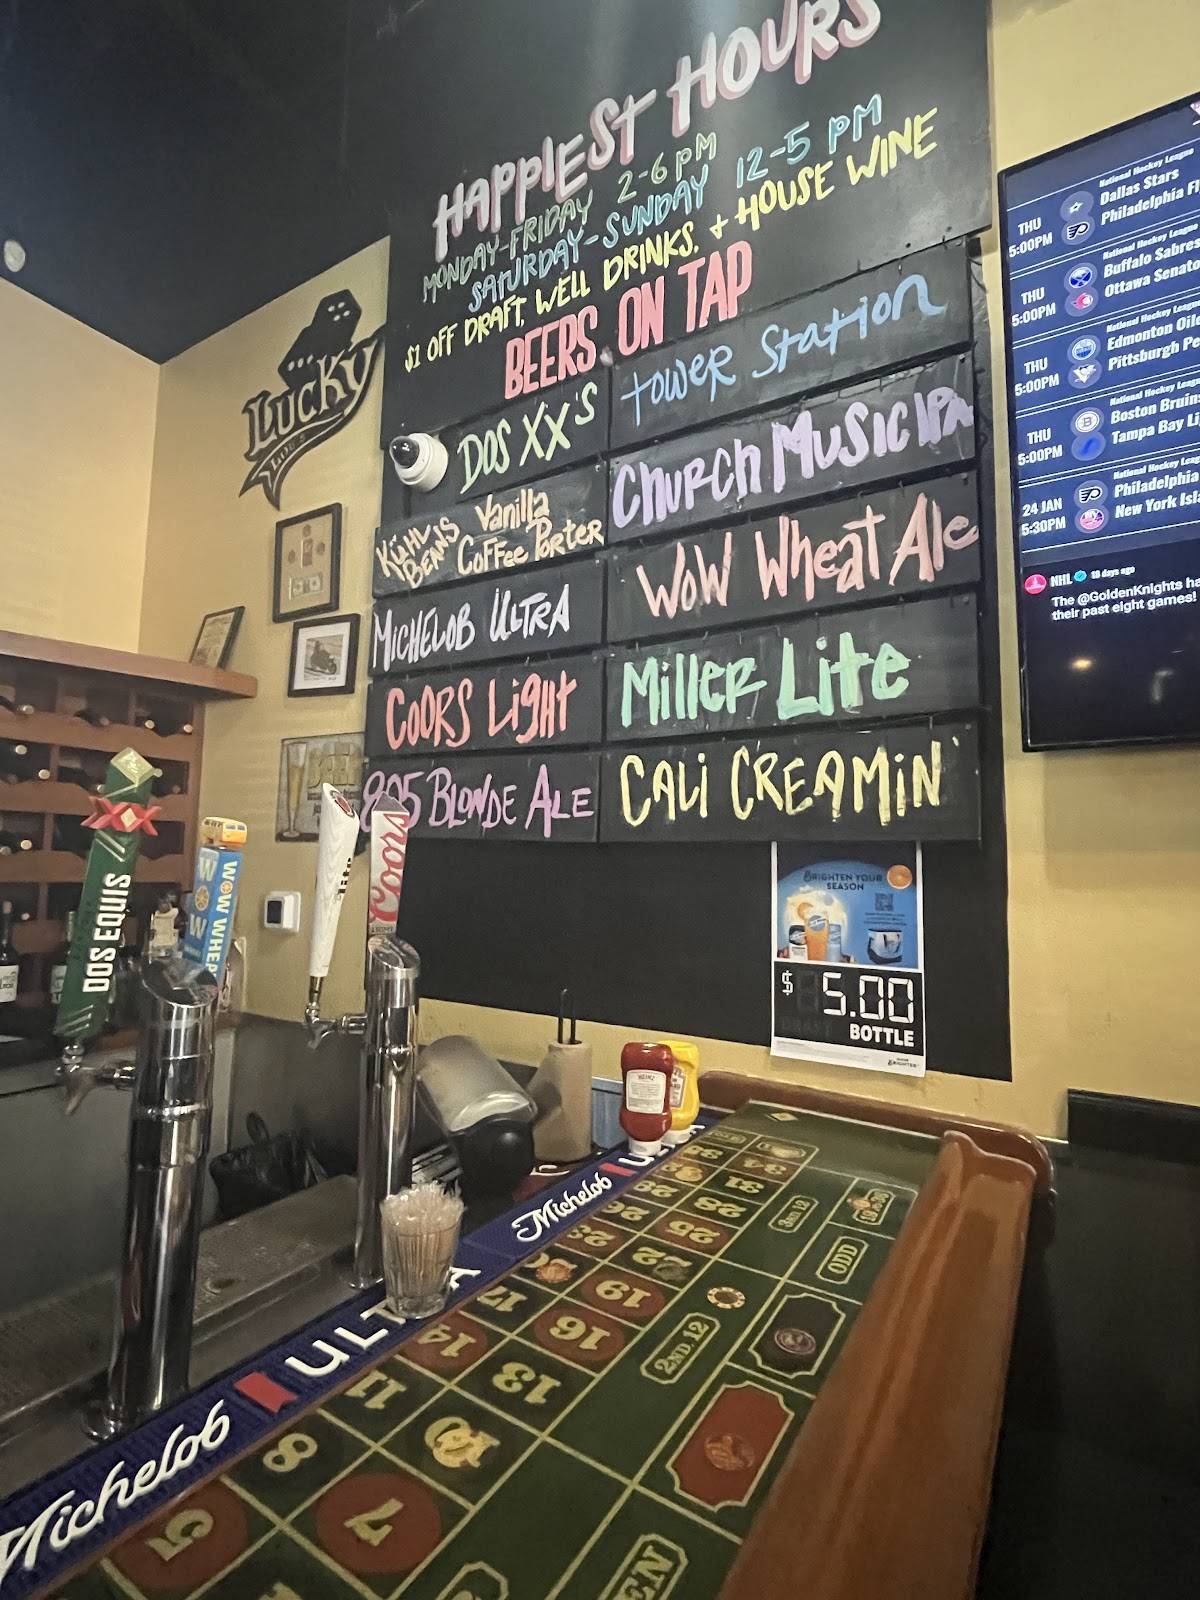 HAPPIEST HOURS
MONDAY-FRIDAY 2-6 PM
SATURDAY-SUNDAY 12-5 PM
$1 OFF DRAFT, WELL DRINKS, + HOUSE WINE
BEERS ON TAP
DOS XX'S
KÜHL BEANS Vanilla Coffee Porter
MICHELOB ULTRA
COORS Light
805 BLONDE ALE
tower Station
Church Music IPA
WOW Wheat Ale
Miller Lite
CALi CREAMiN'
Lucky
THU
5:00PM
National Hockey League
Dallas Stars
Philadelphia
THU
5:00PM
National Hockey League
Buffalo Sabres
Ottawa
THU
5:00PM
National Hockey League
Edmonton
Pittsburgh
THU
5:00PM
National Hockey
Boston Bruins
Tampa Bay
24 JAN
5:30PM
National Hockey
Philadelphia
New York
NHL 18 days ago
The @GoldenKnights
their past eight games!
BRIGHTEN YOUR
SEASON
$5.00
BOTTLE
DOS EQUIS
WOW
WOW WHEAT
lite
Coors
HEINZ
Michelob
ULTRA
Michelob
34
31
28
25
22
19
16
13
29
26
23
20
17
14
11
8
7
5
3rd 12
2ND. 12
19 to 36
ODD